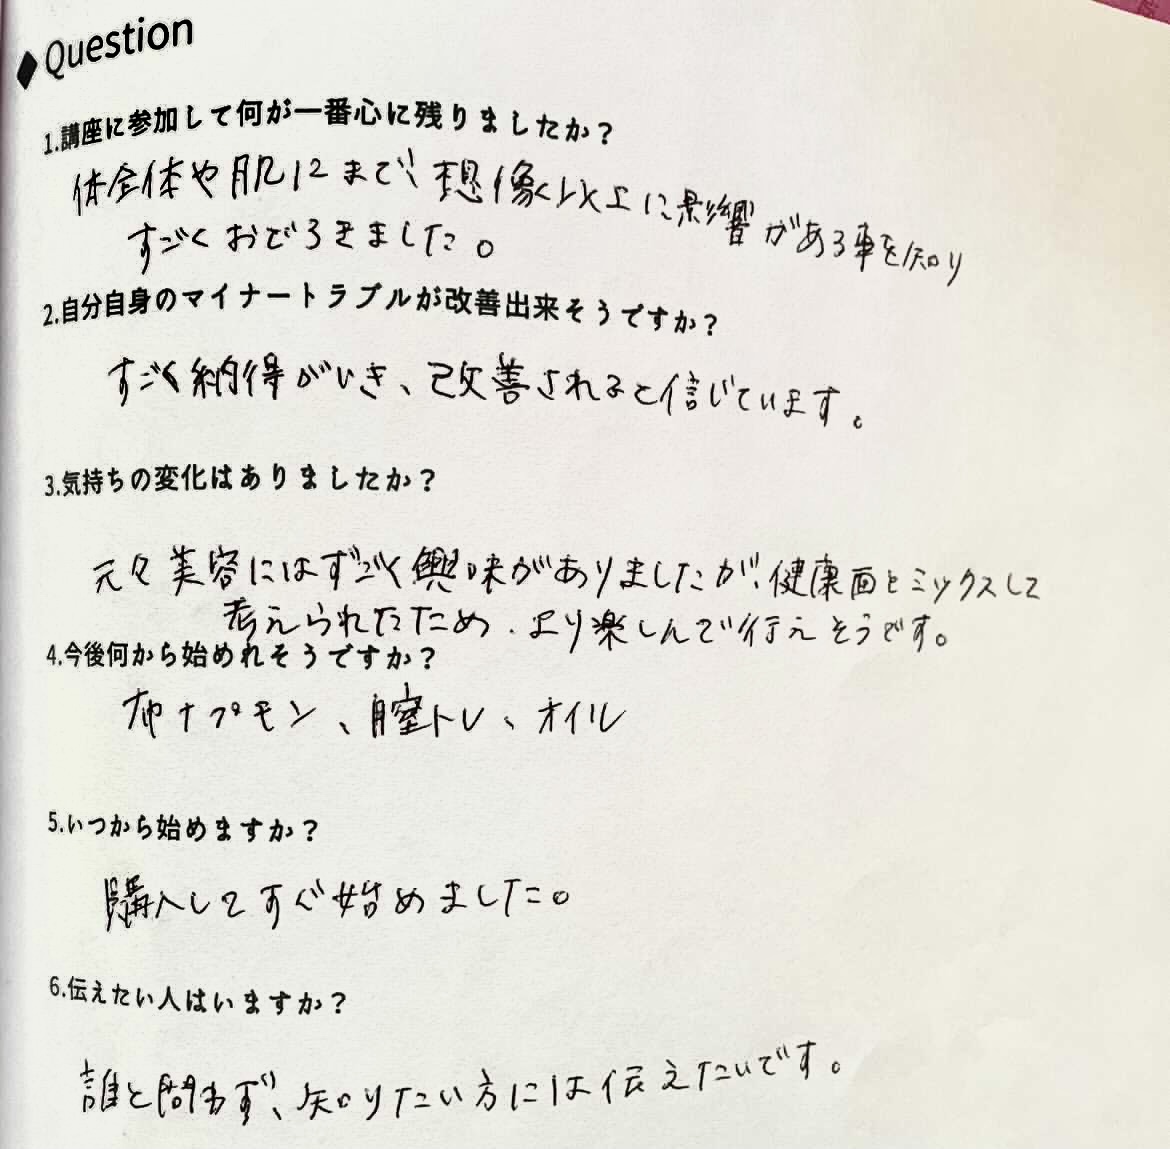 ◆Question
1.講座に参加して何が一番心に残りましたか？
体全体や肌にまで、想像以上に影響がある事を知り
すごくおどろきました。
2.自分自身のマイナートラブルが改善出来そうですか？
すごく納得がいき、改善されると信じています。
3.気持ちの変化はありましたか？
元々美容にはすごく興味がありましたが、健康面とミックスして
考えられたため、より楽しんで行えそうです。
4.今後何から始めれそうですか？
布ナプモン、膣トレ、オイル
5.いつから始めますか？
購入してすぐ始めました。
6.伝えたい人はいますか？
誰と問わず、知りたい方には伝えたいです。